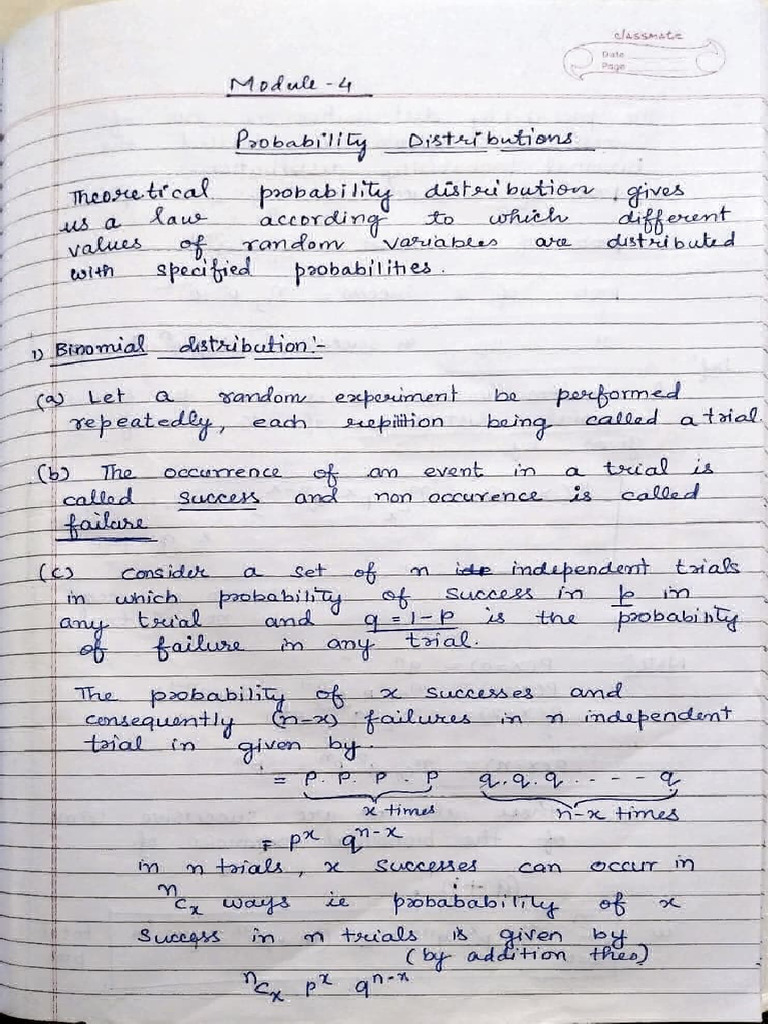 classmate
Date
Page
Module - 4
Probability Distributions
Theoretical probability distribution gives
us a law according to which different
values of random variables are distributed
with specified probabilities.
1) Binomial distribution:-
(a) Let a random experiment be performed
repeatedly, each repitition being called a trial.
(b) The occurrence of an event in a trial is
called success and non occurence is called
failure
(c) consider a set of n independent trials
in which probability of success in p in
any trial and q = 1 - p is the probability
of failure in any trial.
The probability of x successes and
consequently (n-x) failures in n independent
trial in given by.
= p. p. p . p q. q. q . - - - q
x times n-x times
= pˣ qⁿ⁻ˣ
in n trials, x successes can occur in
ⁿCₓ ways ie probabability of x
success in n trials is given by
(by addition theo)
ⁿCₓ pˣ qⁿ⁻ˣ